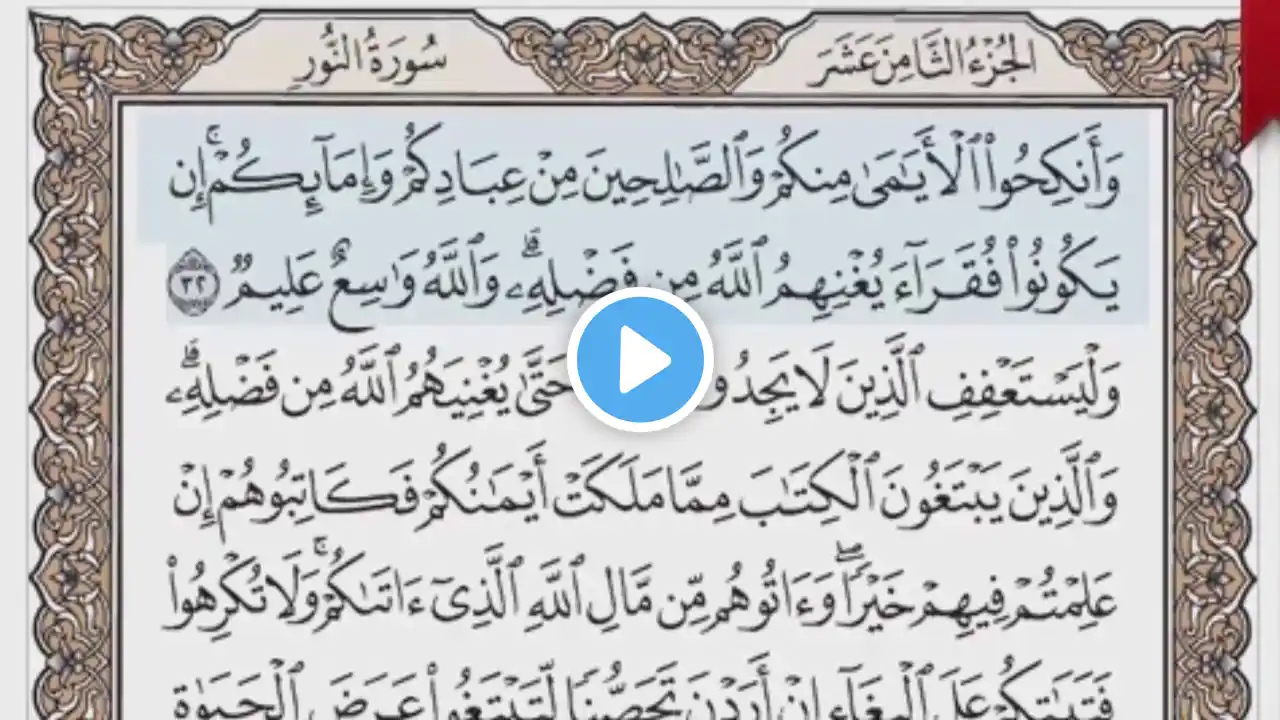 الجُزْءُ الثَّامِنَ عَشَرَ
سُورَةُ النُّورِ
وَأَنكِحُوا۟ ٱلْأَيَـٰمَىٰ مِنكُمْ وَٱلصَّـٰلِحِينَ مِنْ عِبَادِكُمْ وَإِمَآئِكُمْ ۚ إِن
يَكُونُوا۟ فُقَرَآءَ يُغْنِهِمُ ٱللَّهُ مِن فَضْلِهِۦ ۗ وَٱللَّهُ وَٰسِعٌ عَلِيمٌ ٣٢
وَلْيَسْتَعْفِفِ ٱلَّذِينَ لَا يَجِدُو حَتَّىٰ يُغْنِيَهُمُ ٱللَّهُ مِن فَضْلِهِۦ ۗ
وَٱلَّذِينَ يَبْتَغُونَ ٱلْكِتَـٰبَ مِمَّا مَلَكَتْ أَيْمَـٰنُكُمْ فَكَاتِبُوهُمْ إِنْ
عَلِمْتُمْ فِيهِمْ خَيْرًا ۖ وَءَاتُوهُم مِّن مَّالِ ٱللَّهِ ٱلَّذِىٓ ءَاتَىٰكُمْ ۚ وَلَا تُكْرِهُوا۟
فَتَيَـٰتِكُمْ عَلَى ٱلْبِغَآءِ إِنْ أَرَدْنَ تَحَصُّنًا لِّتَبْتَغُوا۟ عَرَضَ ٱلْحَيَوٰةِ